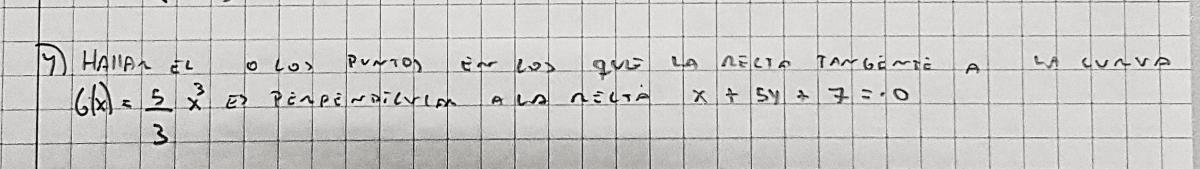 4) HALLAR EL O LOS PUNTOS EN LOS QUE LA RECTA TANGENTE A LA CURVA
G(x) = 5/3 x³ ES PERPENDICULAR A LA RECTA x + 5y + 7 = 0